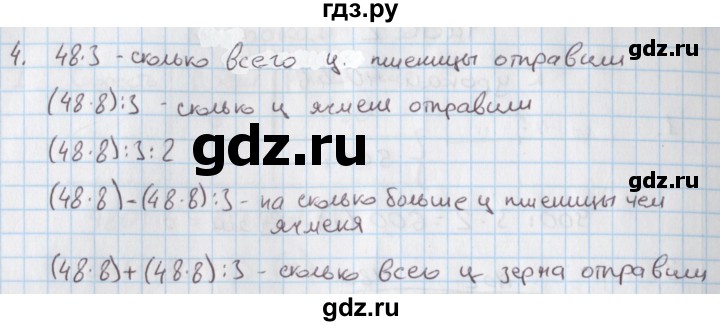 гдз.ру
4. 48·3 - сколько всего ц. пшеницы отправили
(48·8):3 - сколько ц ячменя отправили
(48·8):3:2
gdz.ru
(48·8)-(48·8):3 - на сколько больше ц пшеницы чем
ячменя
(48·8)+(48·8):3 - сколько всего ц зерна отправили
gdz.ru